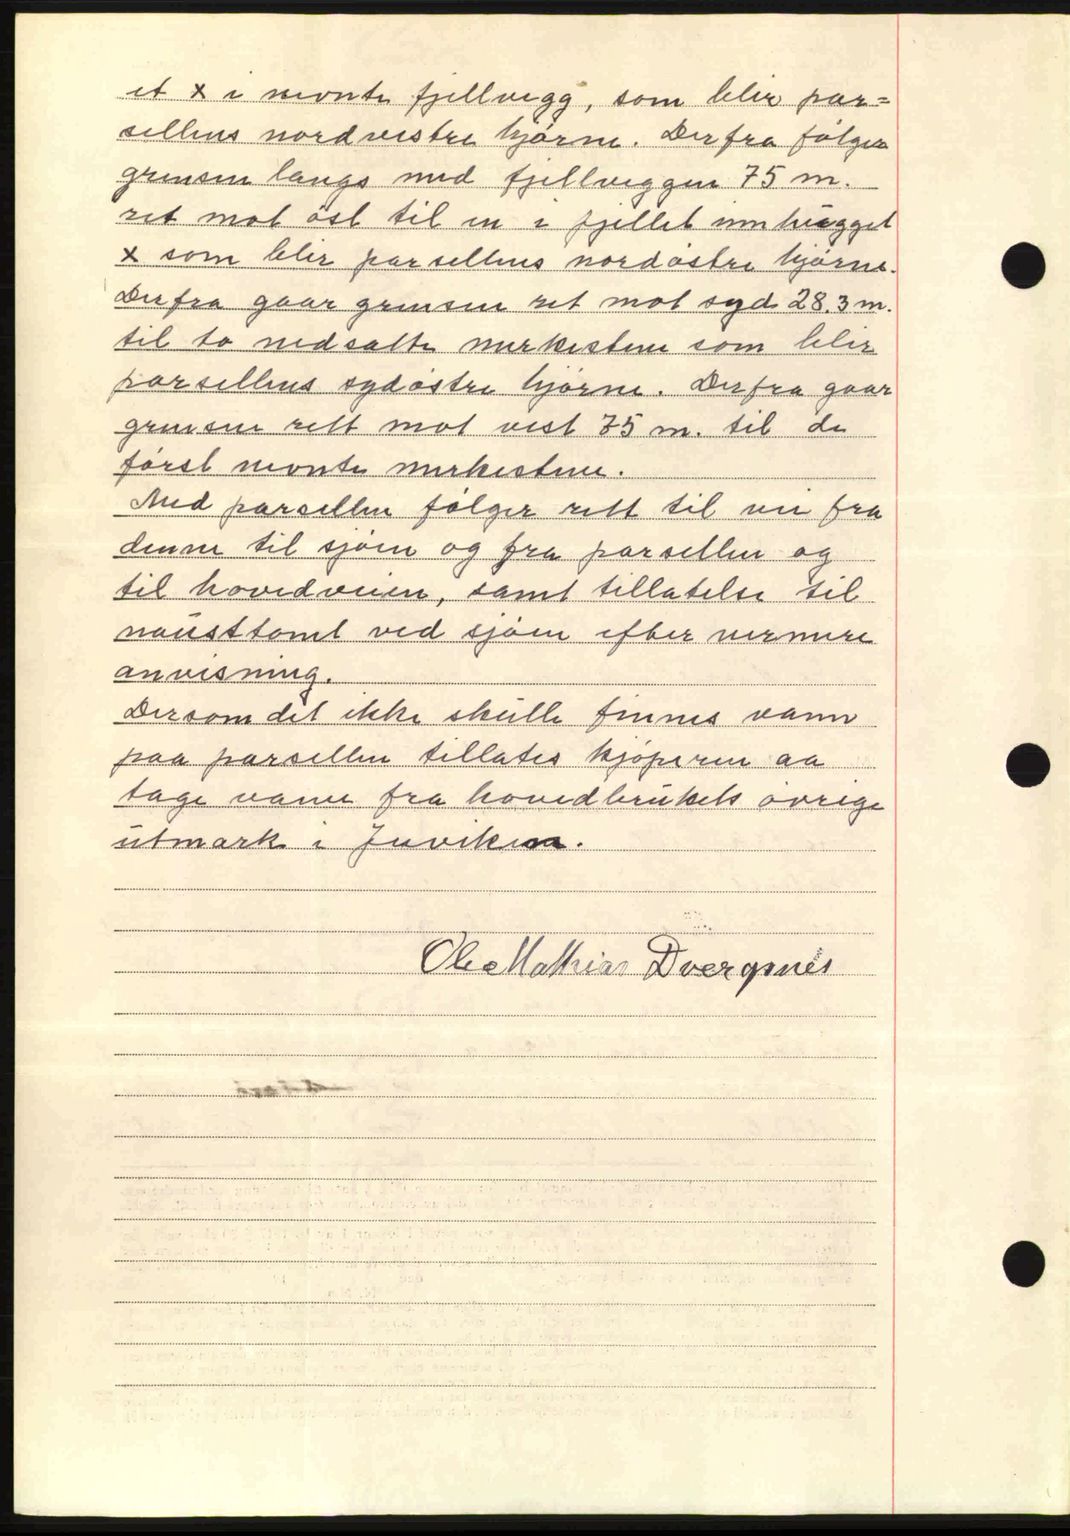 et x i nevnte fjellvegg, som blir par=
sellens nordvestre hjörne. Derfra fölger
grensen langs med fjellveggen 75 m.
ret mot öst til en i fjellet innhúgget
x som blir parsellens nordöstre hjörne.
Derfra gaar grensen ret mot syd 28.3 m.
til to nedsatte merkestene som blir
parsellens sydöstre hjörne. Derfra gaar
grensen rett mot vest 75 m. til de
först nevnte merkestene.
Med parsellen fölger rett til vei fra
denne til sjöen og fra parsellen og
til hovedveien, samt tillatelse til
nausttomt ved sjöen efter nermere
anvisning.
Dersom det ikke skulle finnes vann
paa parsellen tillates kjöperen aa
tage vann fra hovedbrukets övrige
utmark i Juviken.
Ole Mathias Dvergsnes